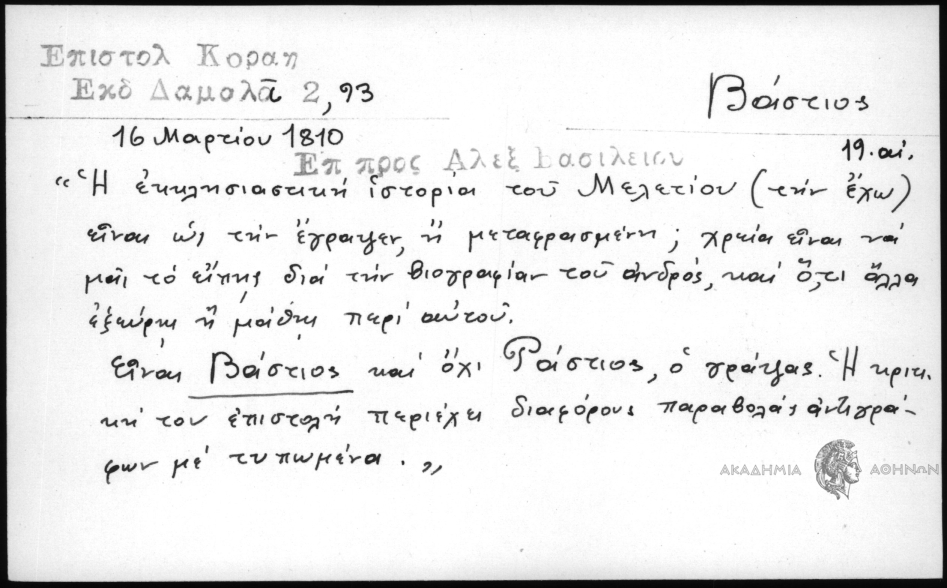 Επιστολ Κοραη
Εκδ Δαμαλᾶ 2, 93
Βάστιος
16 Μαρτίου 1810
19. αἰ.
Επ προς Αλεξ Βασιλειου
“Ἡ ἐκκλησιαστική ἱστορία τοῦ Μελετίου (τήν ἔχω)
εἶναι ὡς τήν ἔγραψεν, ἤ μεταφρασμένη; χρεία εἶναι νά
μᾶς τό εἴπῃς διά τήν βιογραφίαν τοῦ ἀνδρός, καί ὅ,τι ἄλλα
ἐξεύρῃς ἤ μάθῃς περί αὐτοῦ.
Εἶναι Βάστιος καί ὄχι Ράστιος, ὁ γράψας. Ἡ κριτι-
κή του ἐπιστολή περιέχει διαφόρους παραβολάς ἀντιγρά-
φων μέ τυπωμένα.”
ΑΚΑΔΗΜΙΑ ΑΘΗΝΩΝ